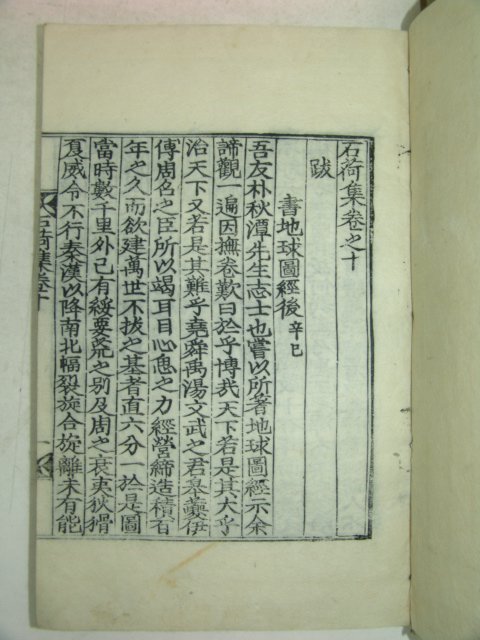 石荷集卷之十
跋
書地球圖經後 辛巳
吾友朴秋潭先生志士也嘗以所著地球圖經示余
諦觀一遍因撫卷歎曰於乎博哉天下若是其大乎
治天下又若是其難乎堯舜禹湯文武之君皐夔伊
傅周召之臣所以竭耳目心思之力經營締造積百
年之久而欲建萬世不拔之基者直六分一於是圖
當時數千里外已有綏要荒之别及周之衰夷狄猾
夏威令不行秦漢以降南北幅裂旋合旋離未有能
石荷集卷十